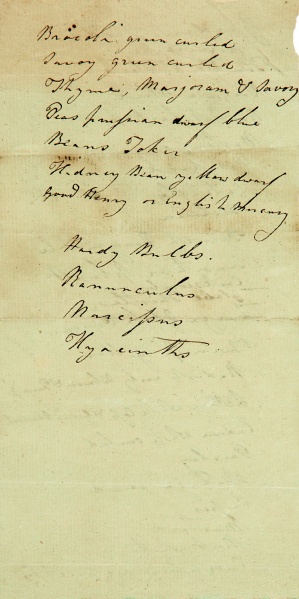 Brocoli green curled
Savoy green curled
Thyme, Marjoram & Savory
Peas prussian dwarf blue
Beans Toker
Kidney Bean yellow dwarf
Good Henry or English Mercury
Hardy Bulbs.
Ranunculus
Narcissus
Hyacinths